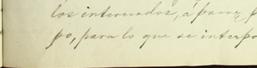 los interesados, á
po, para lo que se interpo